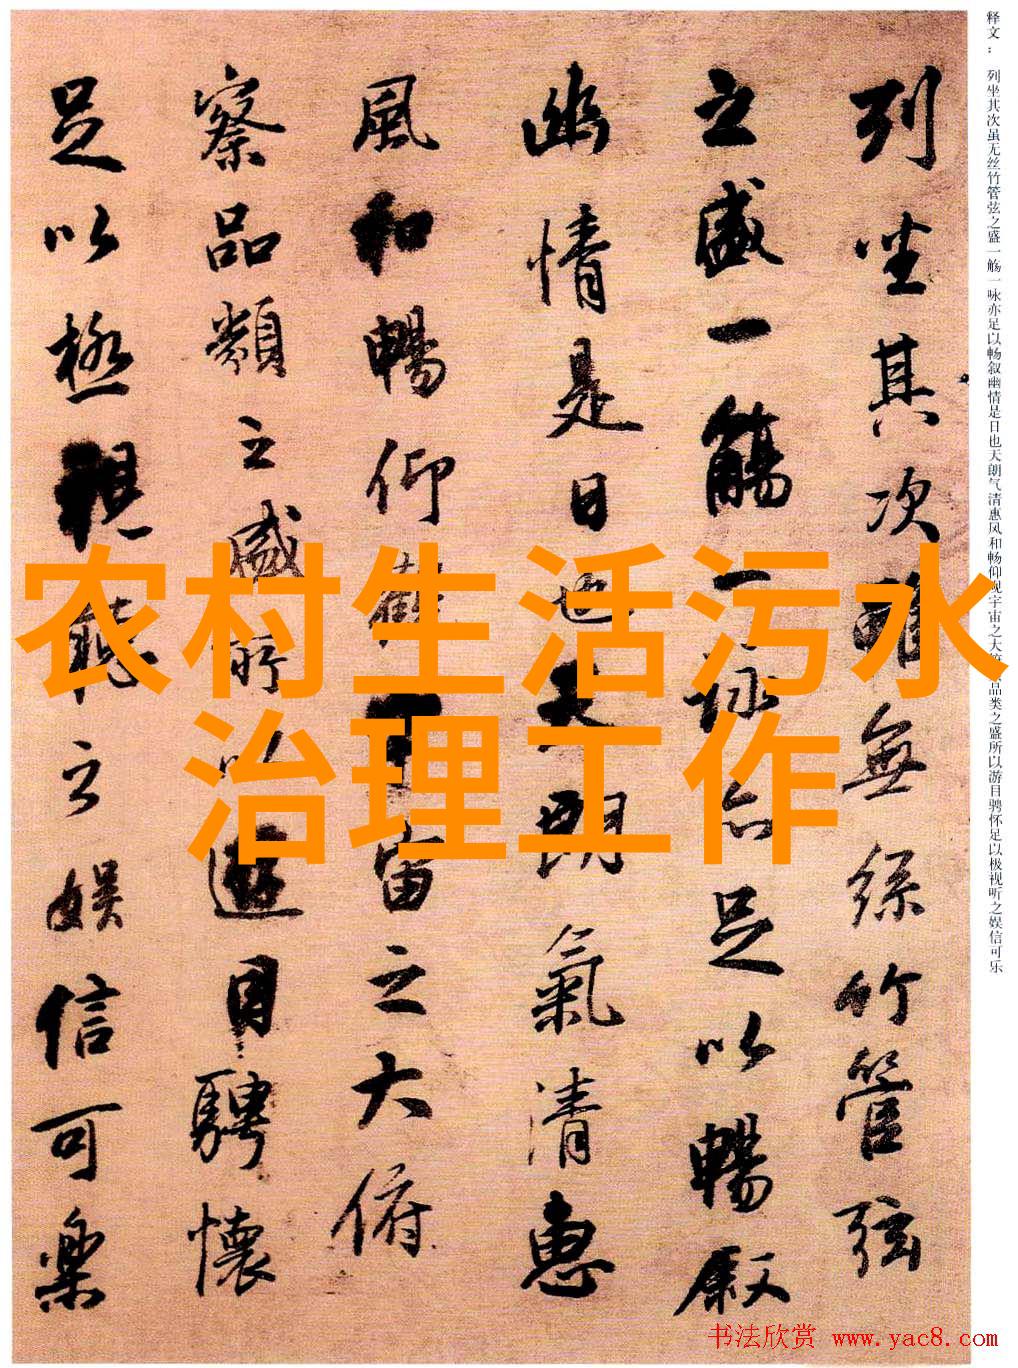 释文： 列坐其次虽无丝竹管弦之盛一觞一咏亦足以畅叙幽情是日也天朗气清惠风和畅仰观宇宙之大品类之盛所以游目骋怀足以极视听之娱信可乐
列坐其次雖無絲竹管弦
之盛一觴一詠亦足以暢叙
幽情是日也天朗氣清惠
風和暢仰觀宇宙之大俯
察品類之盛所以遊目騁懷
足以極視聽之娱信可樂
农村生活污水
治理工作
书法欣赏 www.yac8.com